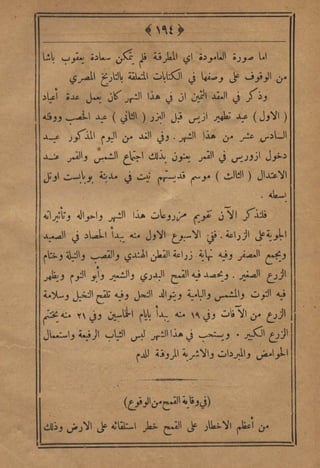 ﴿ ١٩٤ ﴾
اما صورة العامودة اي المطرقة فلم يتمكن سعادة يعقوب باشا
من الوقوف على وصفها في الكتابات المتعلقة بالتاريخ المصري
وذكر في العقد الثمين ان في هذا الشهر كان يعمل عدة أعياد
( الاول ) عيد تطهير ازيس قبل البزر ( الثاني ) عيد الخصب ووقته
السادس عشر من هذا الشهر . وفي الغد من اليوم المذكور عيد
دخول ازوريس في القمر يعنون بذلك اجتماع الشمس والقمر عند
الاعتدال ( الثالث ) موسم قديستهم نيت في مدينة بوباست اوتل
بسطه .
فلنذكر الآن تقويم مزروعات هذا الشهر واحواله وتأثيراته
الجوية على الزراعة . ففي الاسبوع الاول منه يبدأ الحصاد في الصعيد
ويجمع العصفر وفيه نهاية زراعة القطن الهندي والقصب والنيلة وختام
الزرع الصغير . ويحصد فيه القمح البدري والشعير وأبو النوم ويظهر
فيه التوت والمشمس والبامية ويتوالد النحل وفيه تلقح النخيل وسلامة
الزرع من الآفات وفي ١٩ منه يبدأ بايام الخماسين وفي ٢١ منه يختم
الزرع الكبير . ويستحب في هذا الشهر لبس الثياب الرفيعة واستعمال
الحوامض والمبردات والاشربة المروقة للدم
( في وقاية القمح من الوقوع )
من أعظم الاخطار على القمح خطر استلقائه على الارض وذلك